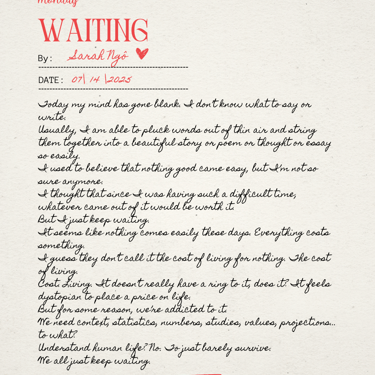 Monday
WAITING
By: Sarah Ngô
DATE: 07/14/2025
Today my mind has gone blank. I don't know what to say or
write.
Usually, I am able to pluck words out of thin air and string
them together into a beautiful story or poem or thought or essay
so easily.
I used to believe that nothing good came easy, but I'm not so
sure anymore.
I thought that since I was having such a difficult time,
whatever came out of it would be worth it.
But I just keep waiting.
It seems like nothing comes easily these days. Everything costs
something.
I guess they don't call it the cost of living for nothing. The cost
of living.
Cost. Living. It doesn't really have a ring to it, does it? It feels
dystopian to place a price on life.
But for some reason, we're addicted to it.
We need context, statistics, numbers, studies, values, projections...
to what?
Understand human life? No. To just barely survive.
We all just keep waiting.